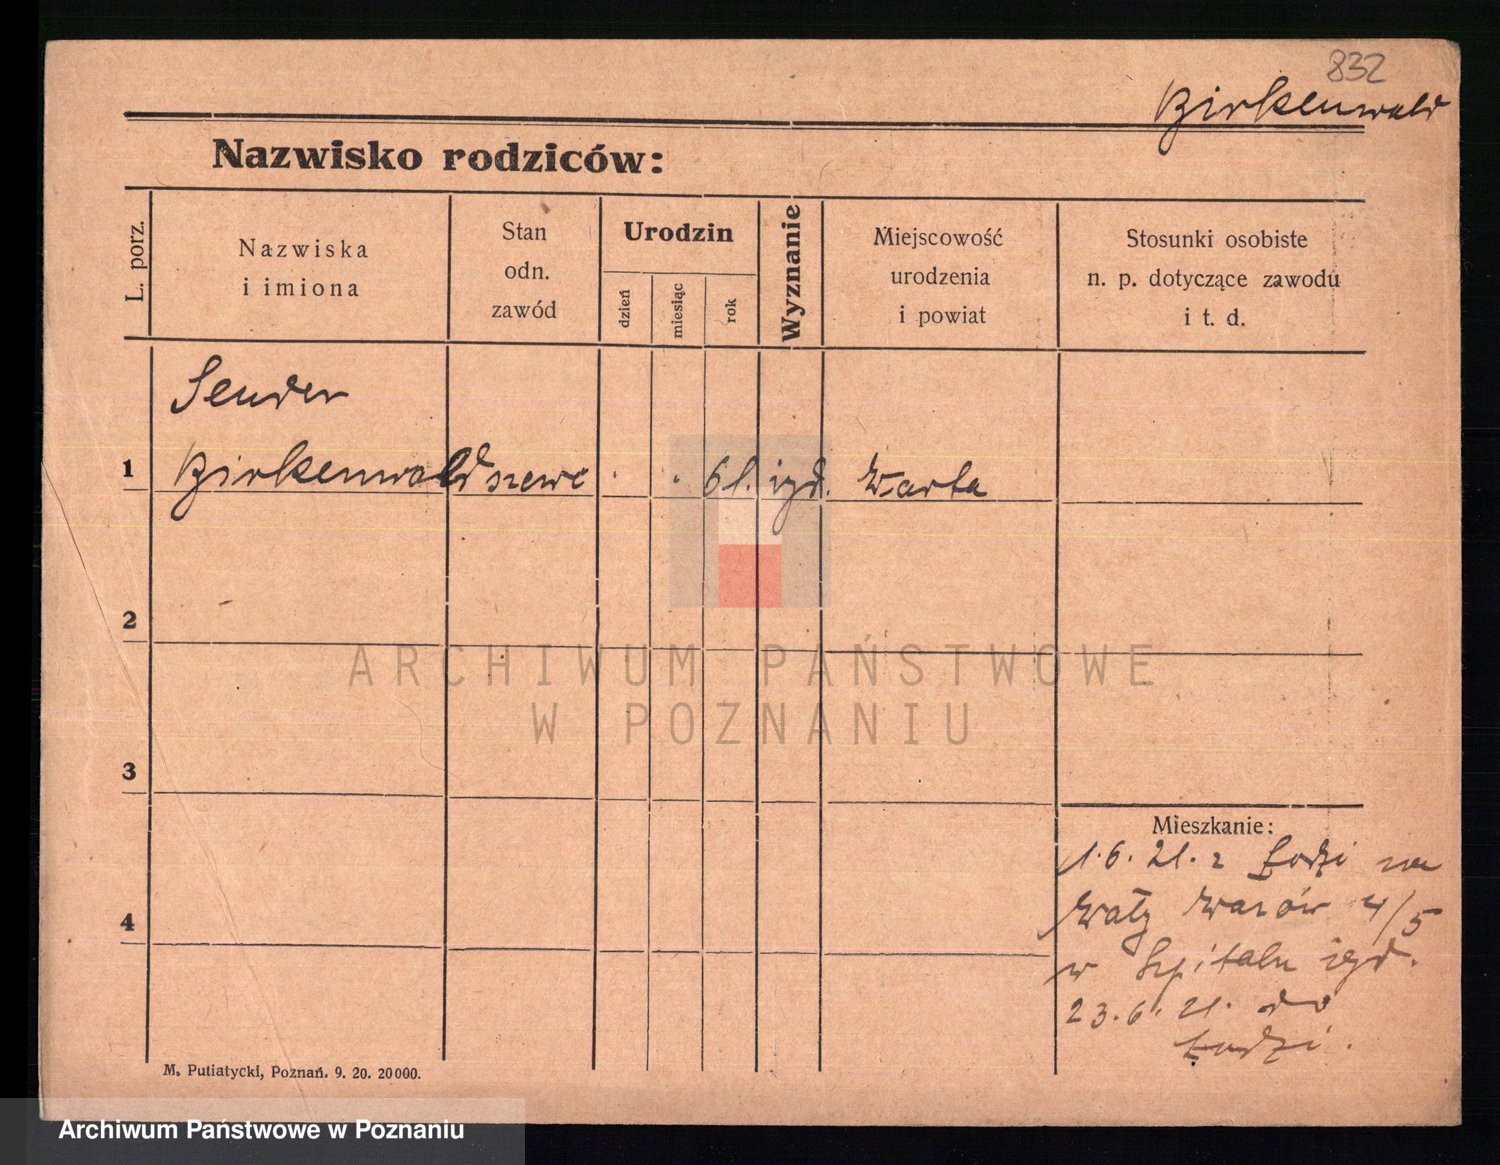 832
Birkenwald
Nazwisko rodziców:
L. porz.
Nazwiska
i imiona
Stan
odn.
zawód
Urodzin
dzień
miesiąc
rok
Wyznanie
Miejscowość
urodzenia
i powiat
Stosunki osobiste
n. p. dotyczące zawodu
i t. d.
Sender
1 Birkenwald szewc . . 61. izd. Warta
2
3
4
Mieszkanie:
1.6.21. z Łodzi na
Wały Wazów 4/5
w Szpitalu izd.
23.6.21. do
Łodzi.
M. Putiatycki, Poznań. 9. 20. 20000.
ARCHIWUM PAŃSTWOWE
W POZNANIU
Archiwum Państwowe w Poznaniu